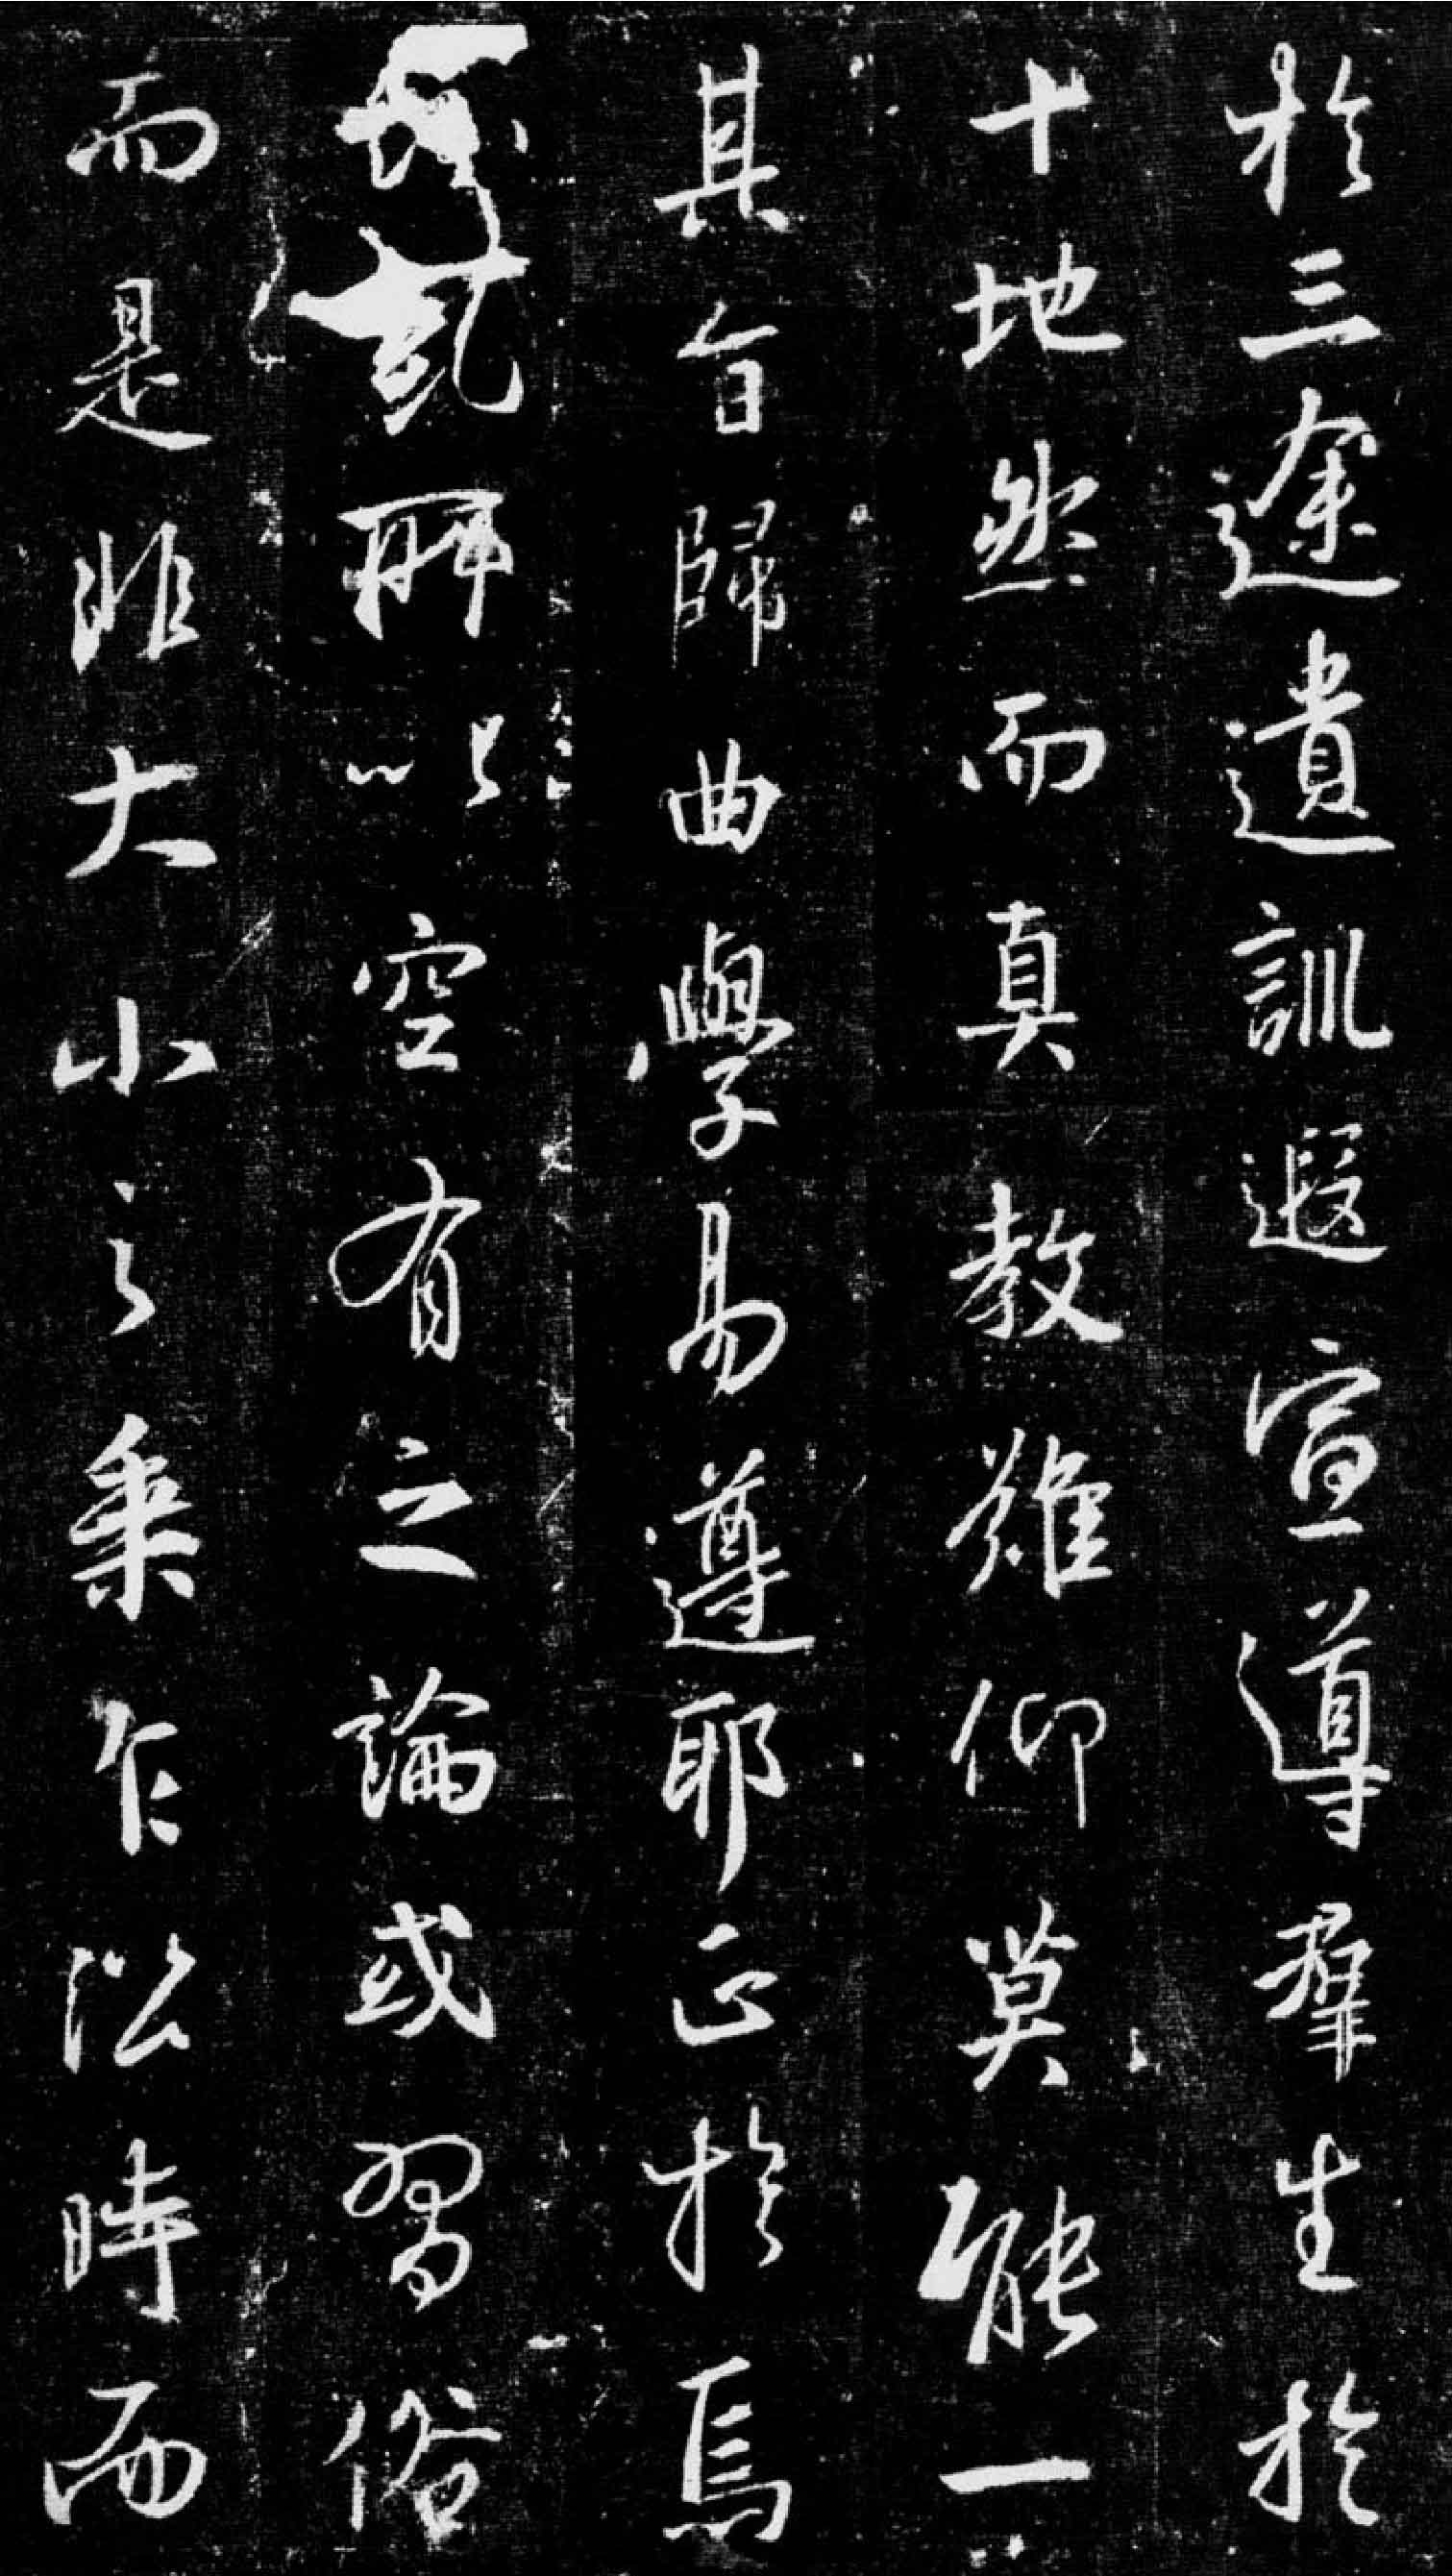 於三途遺訓遐宣導羣生於
十地然而真教難仰莫能一
其旨歸曲學易遵耶正於焉
所以空有之論或習俗
而是非大小之乘乍沿時而